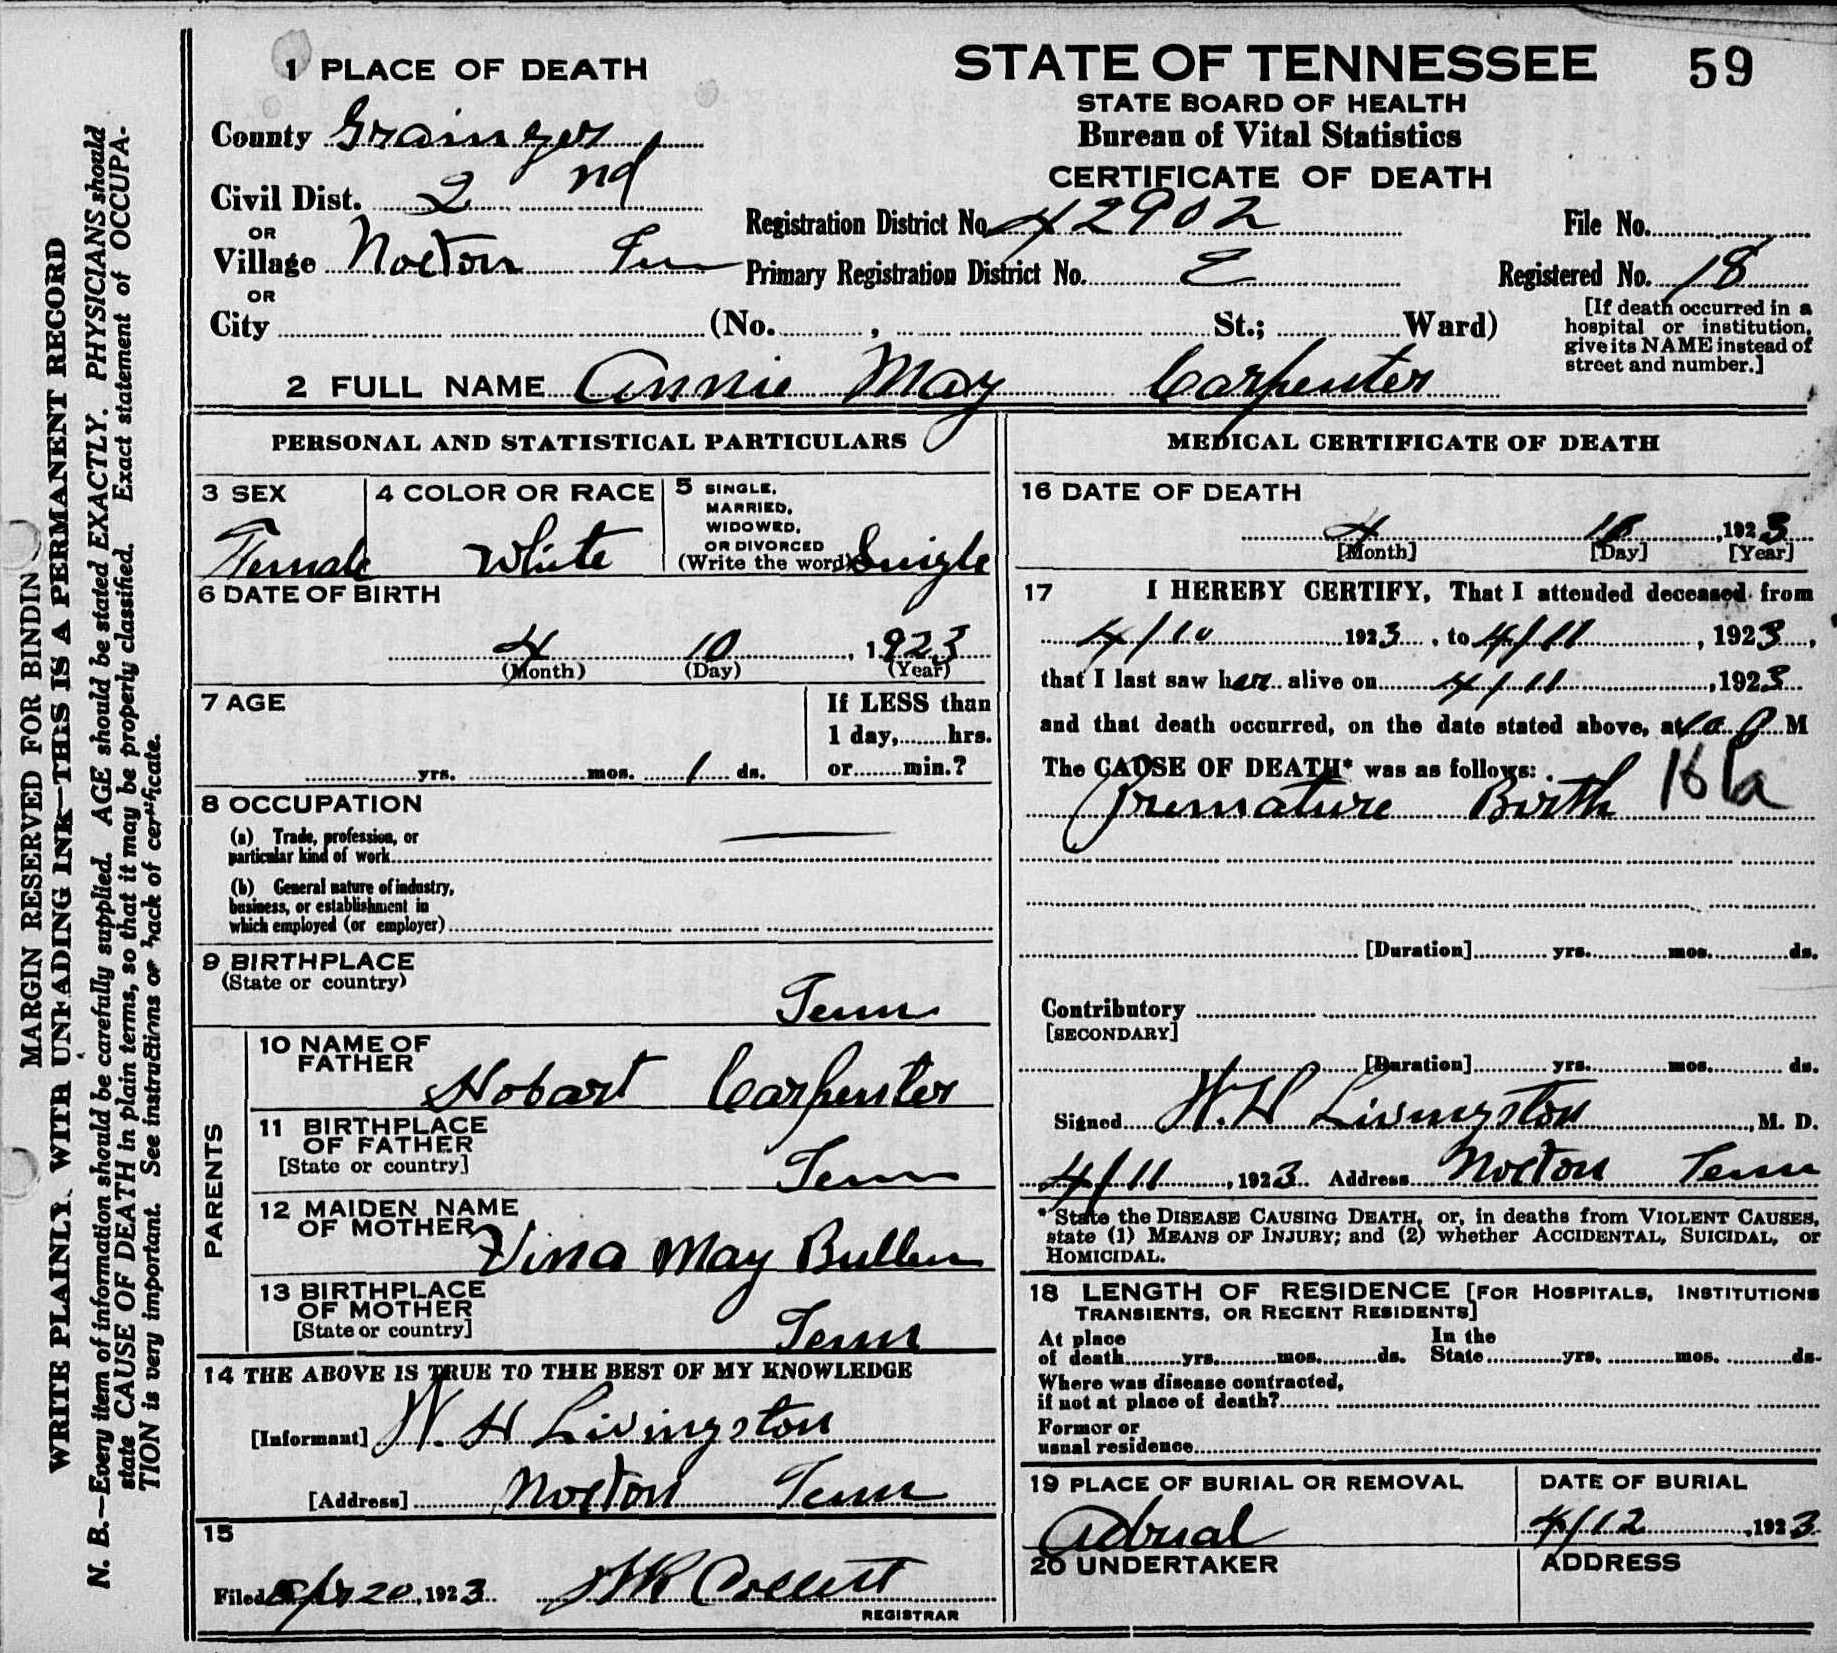 1 PLACE OF DEATH
STATE OF TENNESSEE 59
STATE BOARD OF HEALTH
Bureau of Vital Statistics
CERTIFICATE OF DEATH
County Grainger
Civil Dist. 2 nd
OR
Village Noeton Tenn
OR
City (No. , St.; Ward)
Registration District No. 42902
Primary Registration District No. E
File No.
Registered No. 18
[If death occurred in a
hospital or institution,
give its NAME instead of
street and number.]
2 FULL NAME Annie May Carpenter
PERSONAL AND STATISTICAL PARTICULARS
3 SEX
Female
4 COLOR OR RACE
White
5 SINGLE,
MARRIED,
WIDOWED,
OR DIVORCED
(Write the word) Single
6 DATE OF BIRTH
4 10 , 1923
(Month) (Day) (Year)
7 AGE
yrs. mos. 1 ds.
If LESS than
1 day, hrs.
or min.?
8 OCCUPATION
(a) Trade, profession, or
particular kind of work
(b) General nature of industry,
business, or establishment in
which employed (or employer)
9 BIRTHPLACE
(State or country)
Tenn
PARENTS
10 NAME OF
FATHER
Hobart Carpenter
11 BIRTHPLACE
OF FATHER
[State or country]
Tenn
12 MAIDEN NAME
OF MOTHER
Vina May Bullen
13 BIRTHPLACE
OF MOTHER
[State or country]
Tenn
14 THE ABOVE IS TRUE TO THE BEST OF MY KNOWLEDGE
[Informant] W. H Livingston
[Address] Noeton Tenn
15
Filed Apr 20, 1923 Collett
REGISTRAR
MEDICAL CERTIFICATE OF DEATH
16 DATE OF DEATH
4 , 1923
[Month] [Day] [Year]
17 I HEREBY CERTIFY, That I attended deceased from
4/10 1923 , to 4/11 , 1923 ,
that I last saw her alive on 4/11 , 1923
and that death occurred, on the date stated above, at M
The CAUSE OF DEATH* was as follows:
Premature Birth
[Duration] yrs. mos. ds.
Contributory
[SECONDARY]
[Duration] yrs. mos. ds.
Signed W. H Livingston, M. D.
4/11, 1923 Address Noeton Tenn
* State the DISEASE CAUSING DEATH, or, in deaths from VIOLENT CAUSES,
state (1) MEANS OF INJURY; and (2) whether ACCIDENTAL, SUICIDAL, or
HOMICIDAL.
18 LENGTH OF RESIDENCE [FOR HOSPITALS, INSTITUTIONS
TRANSIENTS, OR RECENT RESIDENTS]
At place
of death yrs. mos. ds.
In the
State yrs. mos. ds.
Where was disease contracted,
if not at place of death?
Former or
usual residence
19 PLACE OF BURIAL OR REMOVAL
DATE OF BURIAL
4/12, 1923
20 UNDERTAKER
ADDRESS
MARGIN RESERVED FOR BINDIN
WRITE PLAINLY, WITH UNFADING INK—THIS IS A PERMANENT RECORD
N. B.—Every item of information should be carefully supplied. AGE should be stated EXACTLY. PHYSICIANS should
state CAUSE OF DEATH in plain terms, so that it may be properly classified. Exact statement of OCCUPA-
TION is very important. See instructions on back of certificate.